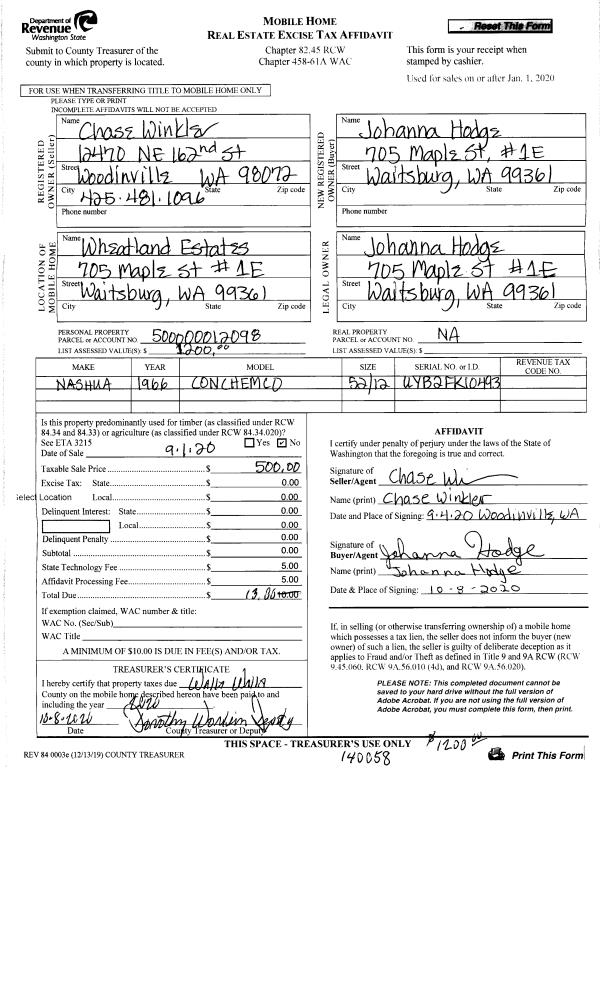 Department of
Revenue
Washington State
Submit to County Treasurer of the
county in which property is located.
MOBILE HOME
REAL ESTATE EXCISE TAX AFFIDAVIT
Chapter 82.45 RCW
Chapter 458-61A WAC
Reset This Form
This form is your receipt when
stamped by cashier.
Used for sales on or after Jan. 1, 2020
FOR USE WHEN TRANSFERRING TITLE TO MOBILE HOME ONLY
PLEASE TYPE OR PRINT
INCOMPLETE AFFIDAVITS WILL NOT BE ACCEPTED
REGISTERED
OWNER (Seller)
Name
Chase Winkler
12470 NE 162nd St
Street
Woodinville WA 98072
City State Zip code
425.481.1096
Phone number
NEW REGISTERED
OWNER (Buyer)
Name
Johanna Hodge
705 Maple St, #1E
Street
Waitsburg, WA 99361
City State Zip code
Phone number
LOCATION OF
MOBILE HOME
Name
Wheatland Estates
705 Maple St #1E
Street
Waitsburg, WA 99361
City State Zip code
LEGAL OWNER
Name
Johanna Hodge
705 Maple St #1E
Street
Waitsburg, WA 99361
City State Zip code
PERSONAL PROPERTY
PARCEL or ACCOUNT NO. 500000012098
LIST ASSESSED VALUE(S): $ 1200.00
REAL PROPERTY
PARCEL or ACCOUNT NO. NA
LIST ASSESSED VALUE(S): $
MAKE YEAR MODEL SIZE SERIAL NO. or I.D. REVENUE TAX CODE NO.
NASHUA 1966 CONCHEMCO 52/12 UYB2FK10493
Is this property predominantly used for timber (as classified under RCW
84.34 and 84.33) or agriculture (as classified under RCW 84.34.020)?
See ETA 3215 Yes No
Date of Sale 9.1.20
Taxable Sale Price $ 500.00
Excise Tax: State $ 0.00
Select Location Local $ 0.00
Delinquent Interest: State $ 0.00
Local $ 0.00
Delinquent Penalty $ 0.00
Subtotal $ 0.00
State Technology Fee $ 5.00
Affidavit Processing Fee $ 5.00
Total Due $ 13.00 10.00
If exemption claimed, WAC number & title:
WAC No. (Sec/Sub)
WAC Title
A MINIMUM OF $10.00 IS DUE IN FEE(S) AND/OR TAX.
TREASURER'S CERTIFICATE
I hereby certify that property taxes due Walla Walla
County on the mobile home described hereon have been paid to and
including the year 2020
10-8-2020
Date County Treasurer or Deputy
AFFIDAVIT
I certify under penalty of perjury under the laws of the State of
Washington that the foregoing is true and correct.
Signature of
Seller/Agent Chase Wi
Name (print) Chase Winkler
Date and Place of Signing: 9.4.20 Woodinville, WA
Signature of
Buyer/Agent Johanna Hodge
Name (print) Johanna Hodge
Date & Place of Signing: 10-8-2020
If, in selling (or otherwise transferring ownership of) a mobile home
which possesses a tax lien, the seller does not inform the buyer (new
owner) of such a lien, the seller is guilty of deliberate deception as it
applies to Fraud and/or Theft as defined in Title 9 and 9A RCW (RCW
9.45.060, RCW 9A.56.010 (4d), and RCW 9A.56.020).
PLEASE NOTE: This completed document cannot be
saved to your hard drive without the full version of
Adobe Acrobat. If you are not using the full version of
Adobe Acrobat, you must complete this form, then print.
THIS SPACE - TREASURER'S USE ONLY
$1200.00
REV 84 0003e (12/13/19) COUNTY TREASURER
140058
Print This Form